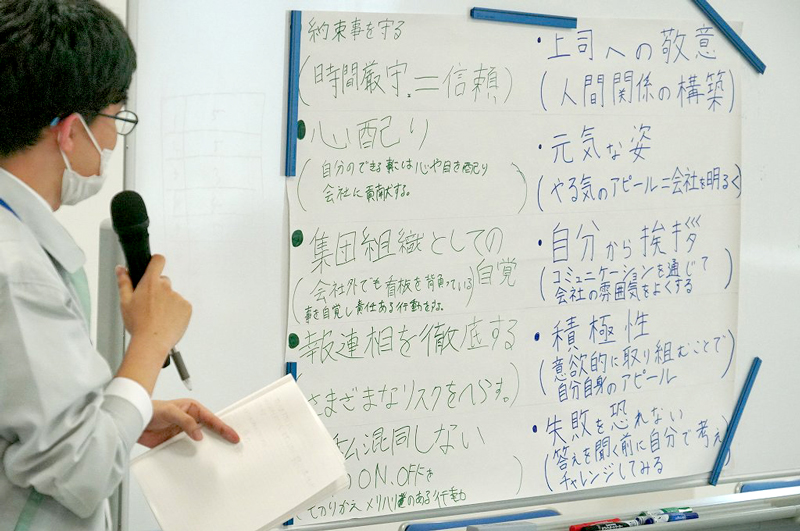 約束事を守る
(時間厳守=信頼)
心配り
(自分のできる事には心や目を配り
会社に貢献する。)
集団組織としての
自覚
(会社外でも看板を背負っている
事を自覚し責任ある行動をする。
報連相を徹底する
さまざまなリスクをへらす。)
混同しない
ON.OFFを
きりかえメリハリのある行動)
・上司への敬意
(人間関係の構築)
・元気な姿
(やる気のアピール=会社を明るく)
・自分から挨拶
(コミュニケーションを通じて
会社の雰囲気をよくする)
・積極性
(意欲的に取り組むことで
自分自身のアピール)
・失敗を恐れない
(答えを聞く前に自分で考え
チャレンジしてみる)